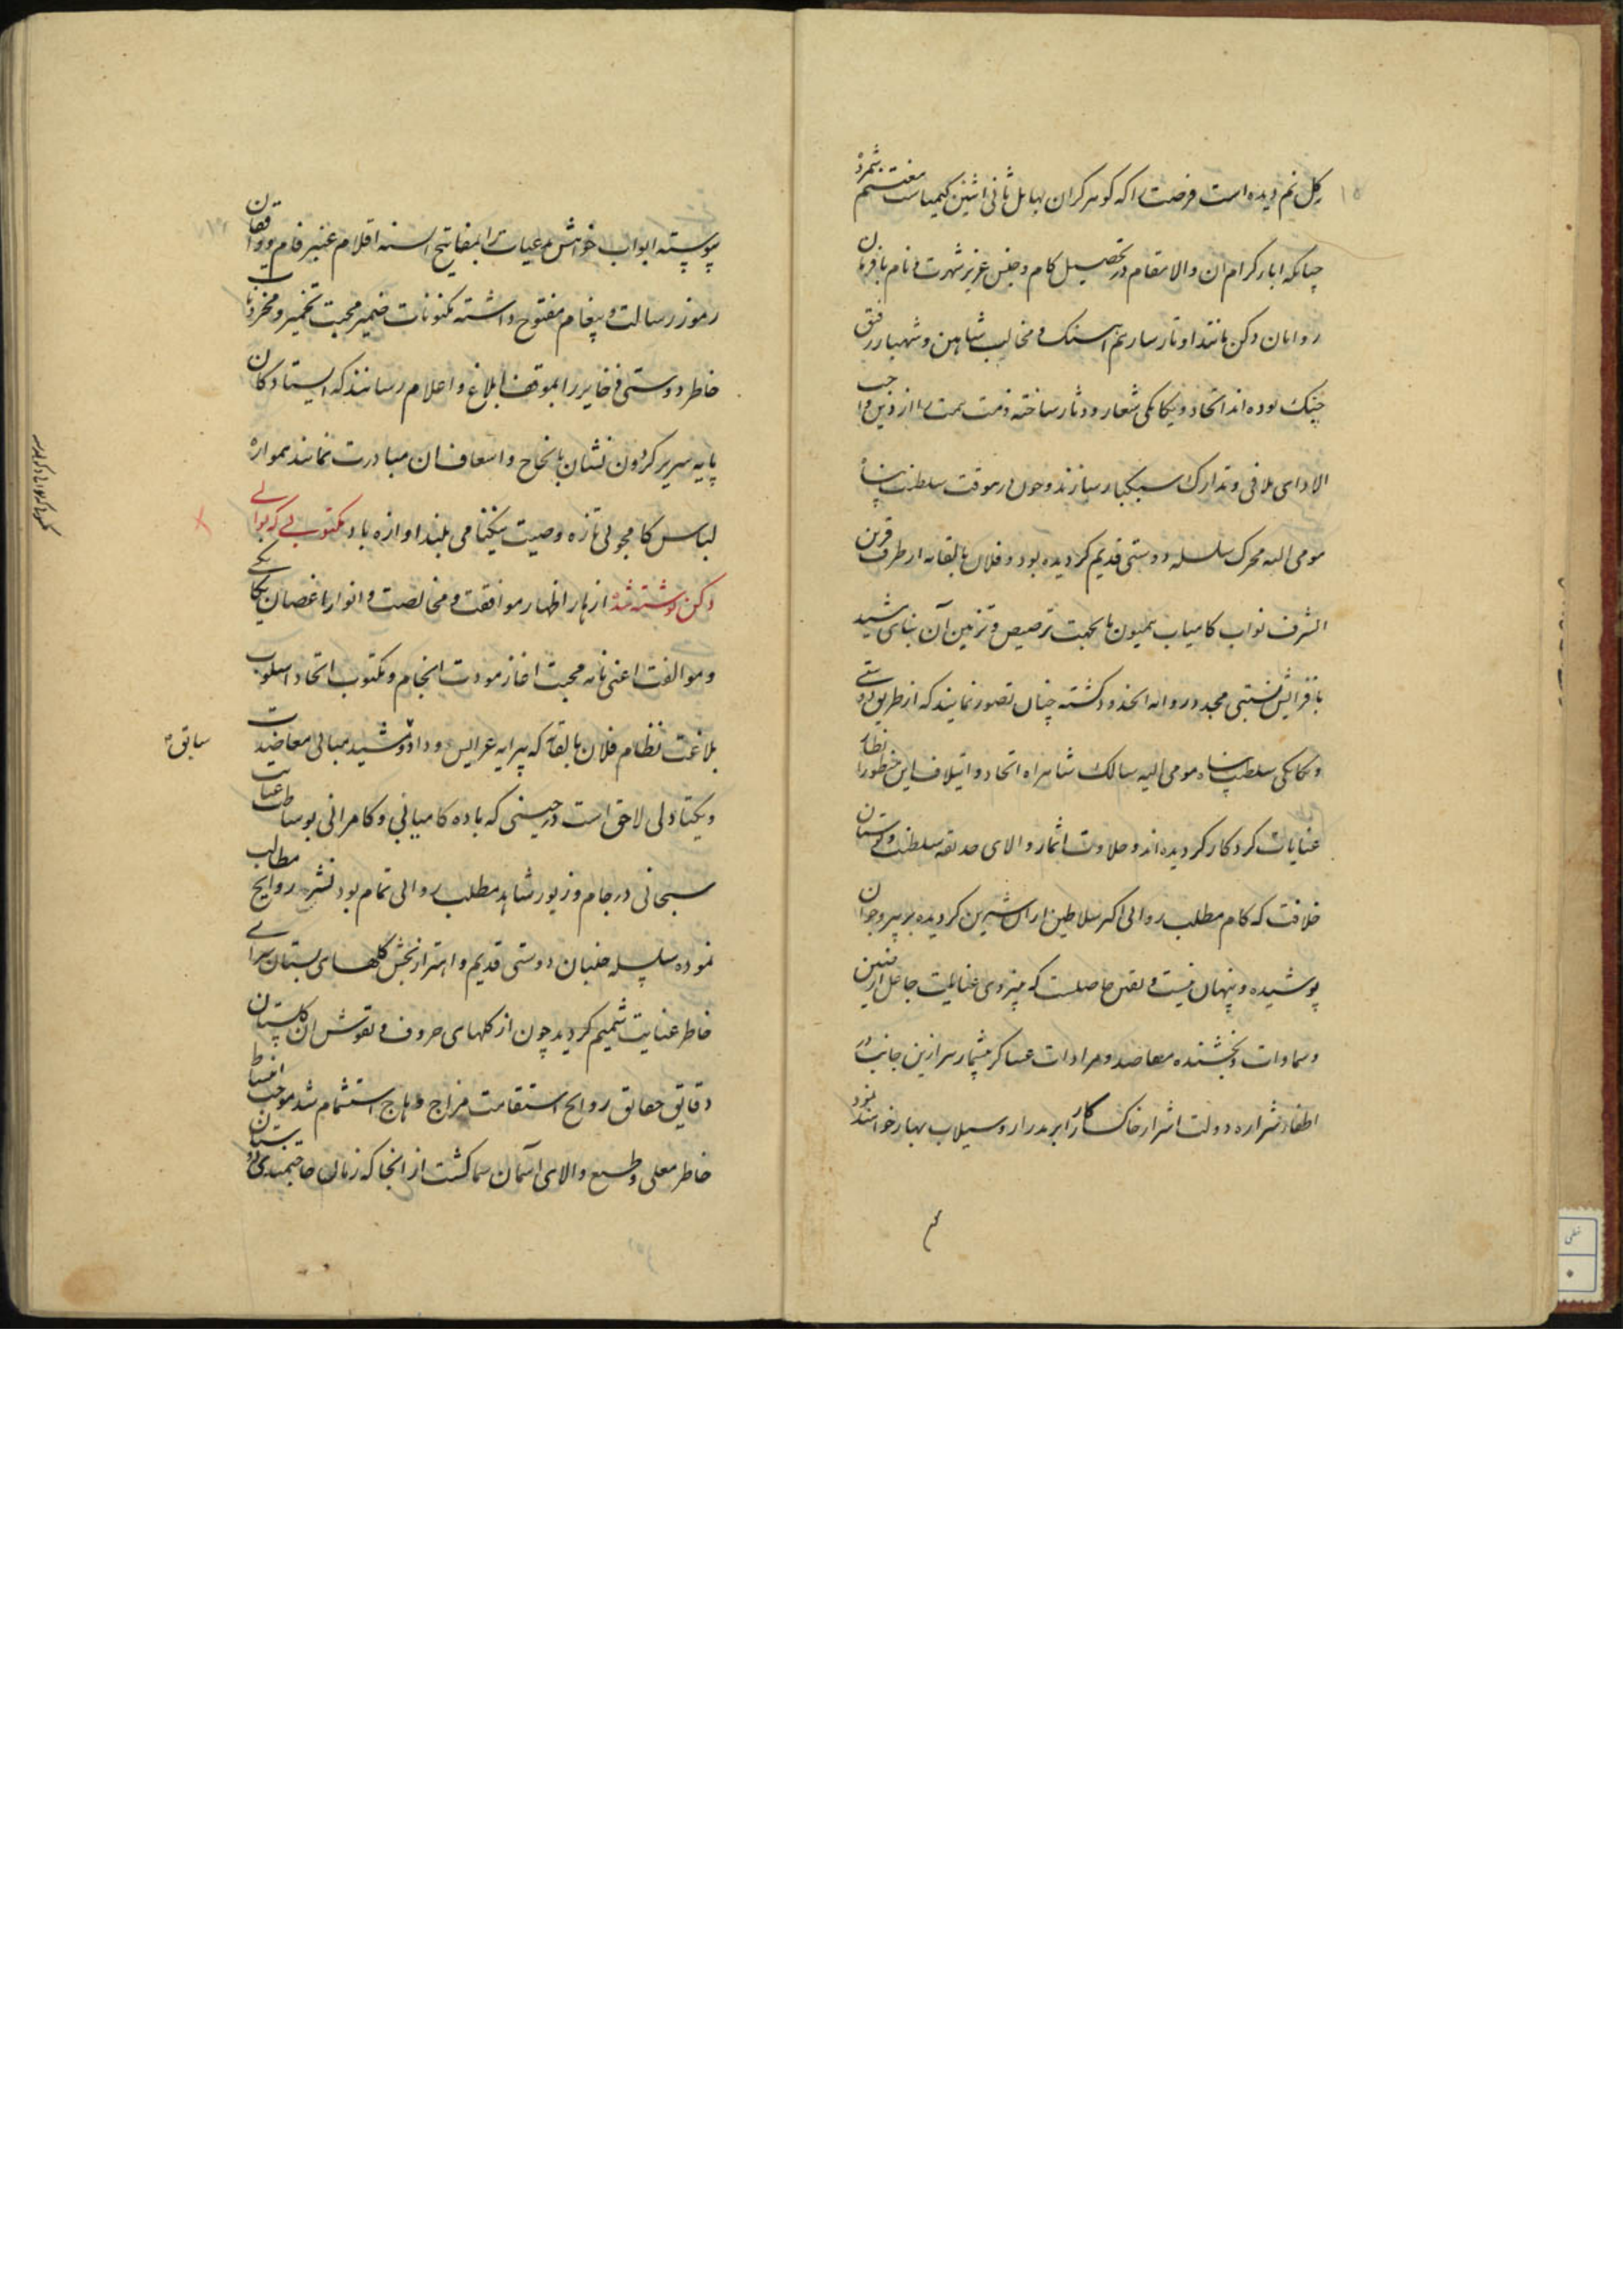 بکل نم دیده است فرصت را که گوهر گران بهایل ثانی اثنین کیمیاست مغتنم شمرد
چنانکه اباء کرام ان والامقام در تحصیل کام و جنس عزیز شهرت و نام با فرمان
روایان دکن مانند اوتار ساز هم اهنک و مخالب شاهین و شهباز رفیق
چنک بوده اند اتحاد و یکانکی شعار و دثار ساخته ذمت همت را از دین واجب
الادای تلافی و تدارک سبکبار سازند و چون درین وقت سلطنت پناه
مومی الیه محرک سلسله دوستی قدیم کردیده بود و فلان بالقابه از طرف قرین
الشرف نواب کامیاب همیون ما بجهت ترصیص و تزیین آن بنای شید
بافزایش نسبتی مجدد روانه انحدود کشته چنان تصور نمایند که از طریق دوستی
و یکانکی سلطنت پناه مومی الیه سالک شاهراه اتحاد و ایتلاف این منظور انظار
عنایات کردکار کردیده اند و حلاوت اثمار والای حدیقه سلطنت و بوستان
خلافت که کام مطلب روایی اکثر سلاطین ازان شیرین کردیده بر پیر و جوان
پوشیده و پنهان نیست و یقین حاصلست که به نیروی عنایت جاعل ارضین
و سماوات و بخشنده مقاصد و مرادات عساکر بیشمار سر ازین جانب در
اطفاء شراره دولت اشرار خاکسار کار ابر مدرار و سیلاب بهار خواهند نمود
پیوسته ابواب خواهش مدعیات را بمفاتیح السنه اقلام عنبر فام و واقفان
رموز رسالت و پیغام مفتوح داشته مکنونات ضمیر محبت تخمیر و مخزونات
خاطر دوستی ذخایر را بموقف ابلاغ و اعلام رسانند که ایستادکان
پایه سریر کردون نشان بانجاح و اسعاف ان مبادرت نمایند همواره
لباس کامجویی تازه و صیت نیکنامی بلند اوازه باد مکتوبی که بوالی
دکن نوشته شد ازهار اظهار موافقت و مخالصت و انوار اغصان یکانکی
و موالفت اعنی نامه محبت اغاز مودت انجام و مکتوب اتحاد اسلوب
بلاغت نظام فلان بالقابه که پیرایه عرایس وداد و مشید مبانی معاضدت
سابق
و یکتادلی لاحق است در حینی که باده کامیابی و کامرانی بوساطت عنایت
سبحانی در جام و زیور شاهد مطلب روایی تمام بود نشر روایح مطالب
نموده سلسله جنبان دوستی قدیم و اهتزاز بخش کلهای بستان سرای
خاطر عنایت شمیم کردید چون از کلهای حروف و نقوش ان کلستان
دقایق حقایق روایح استقامت مزاج وهاج استشمام شد موجب انبساط
خاطر معلی و طبع والای آسمان سما کشت از انجا که زبان